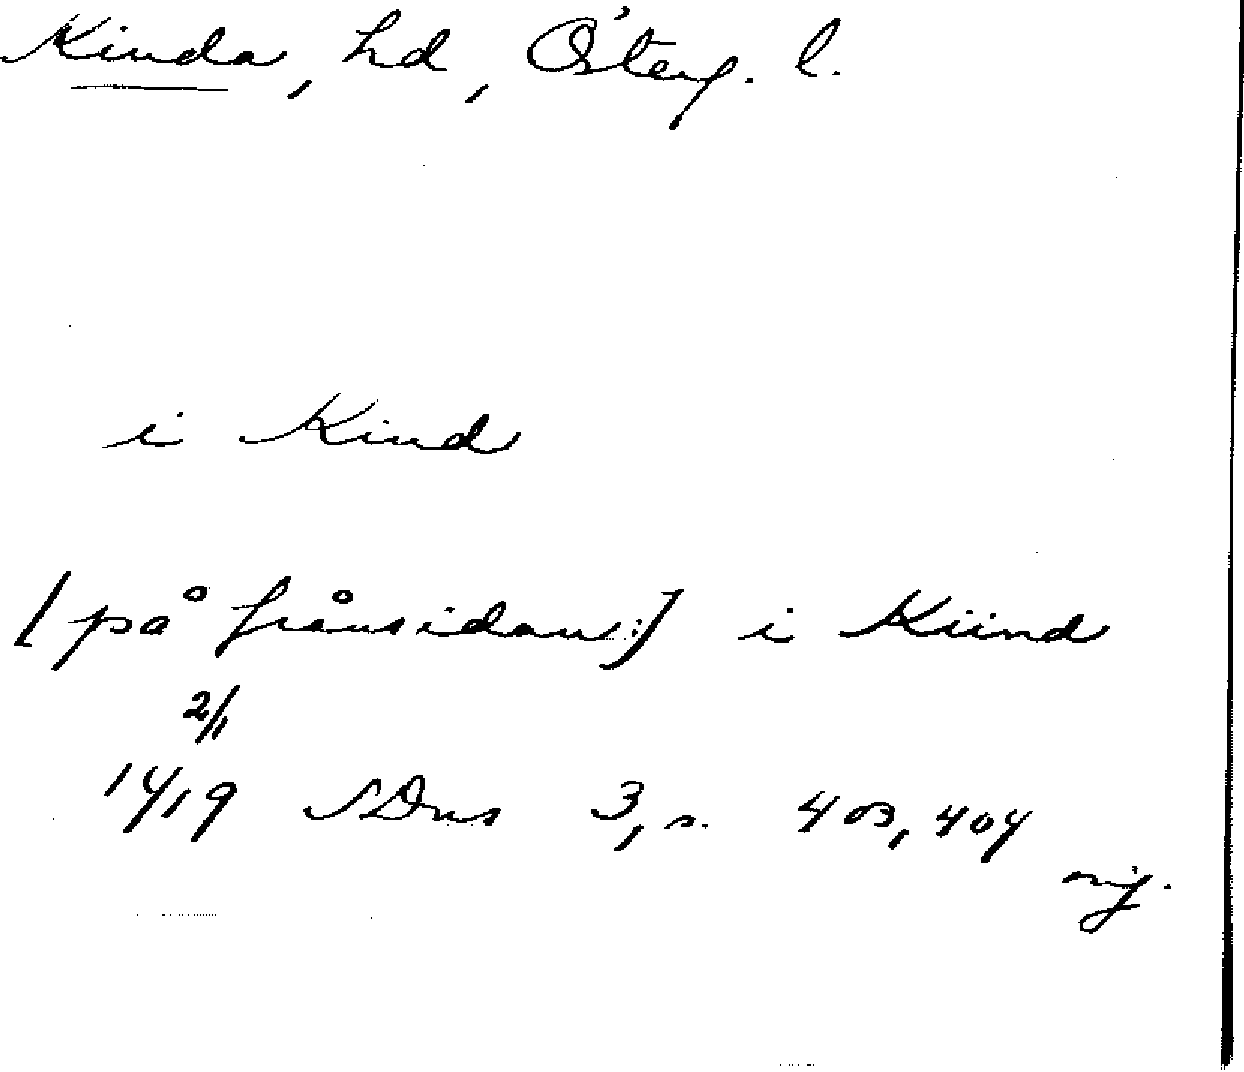 Kinda, hd, Österg. l.
i Kind
[på frånsidan:] i Kiind
2/1
1419 SDns 3, s. 403, 404
orig.